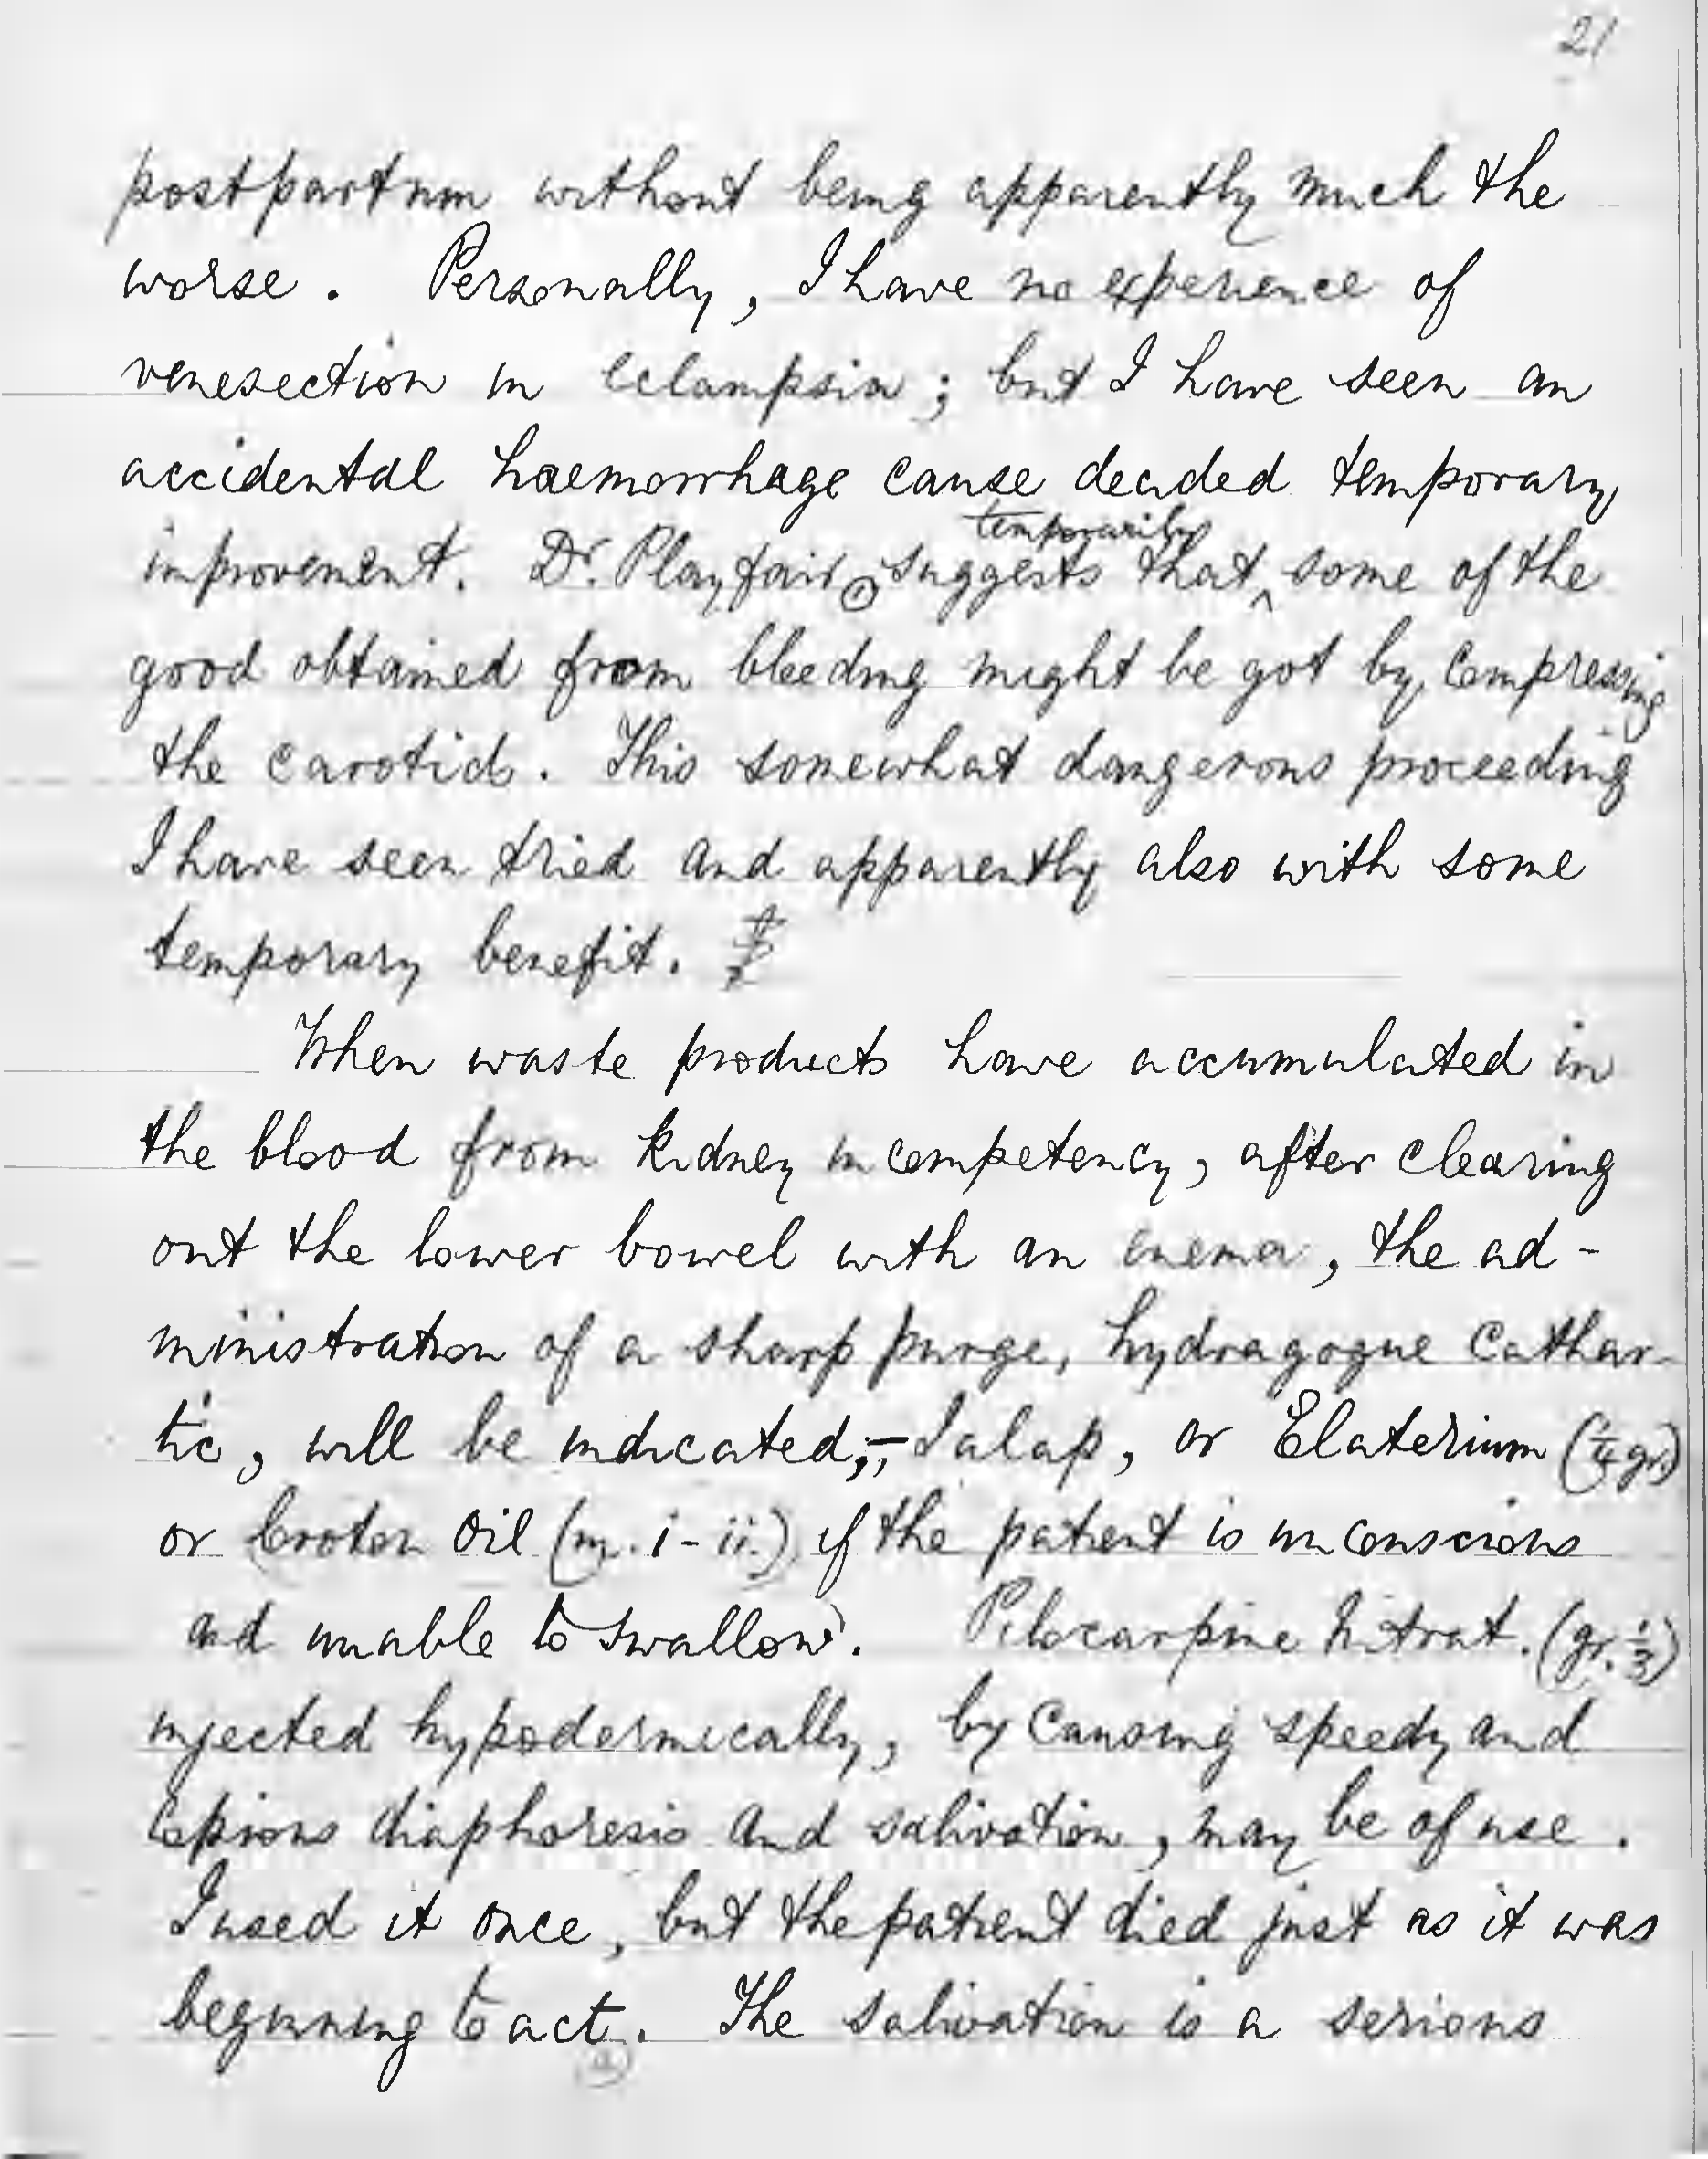 21
postpartum without being apparently much the
worse. Personally, I have no experience of
venesection in Eclampsia; but I have seen an
accidental haemorrhage cause decided temporary
temporarily
improvement. Dr. Playfair ① suggests that ^ some of the
good obtained from bleeding might be got by compressing
the carotid. This somewhat dangerous proceeding
I have seen tried and apparently also with some
temporary benefit.
When waste products have accumulated in
the blood from kidney incompetency, after clearing
out the lower bowel with an enema, the ad-
ministration of a sharp purge, hydragogue Cathar-
tic, will be indicated,;- Jalap, or Elaterium (¼ gr)
or Croton Oil (m. i - ii.) if the patient is unconscious
and unable to swallow. Pilocarpine Nitrat. (gr. ⅓)
injected hypodermically, by causing speedy and
copious diaphoresis and salivation, may be of use.
I used it once, but the patient died just as it was
beginning to act. The salivation is a serious